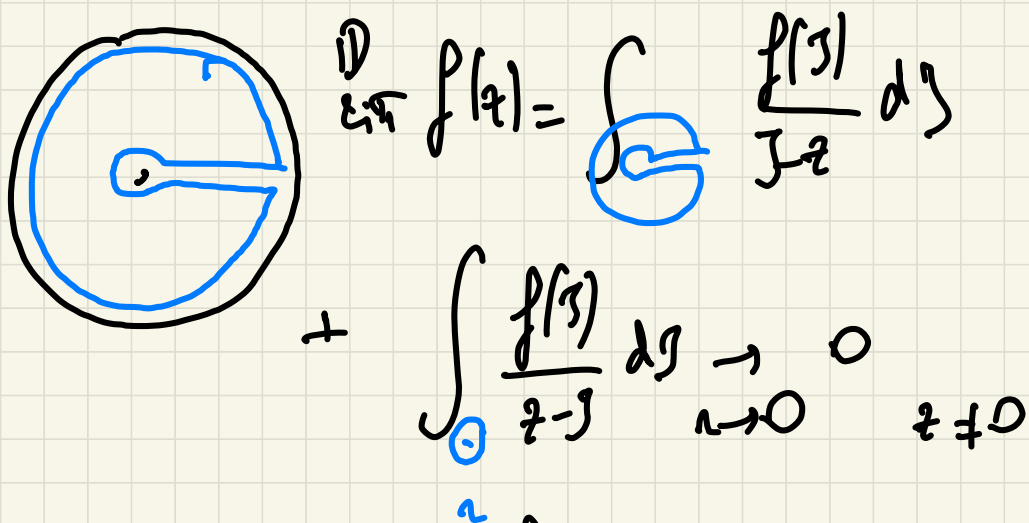 𝔻
2iπ f(z) = ∫ f(ζ)/(ζ-z) dζ
+ ∫ f(ζ)/(z-ζ) dζ → 0
r→0 z ≠ 0
r